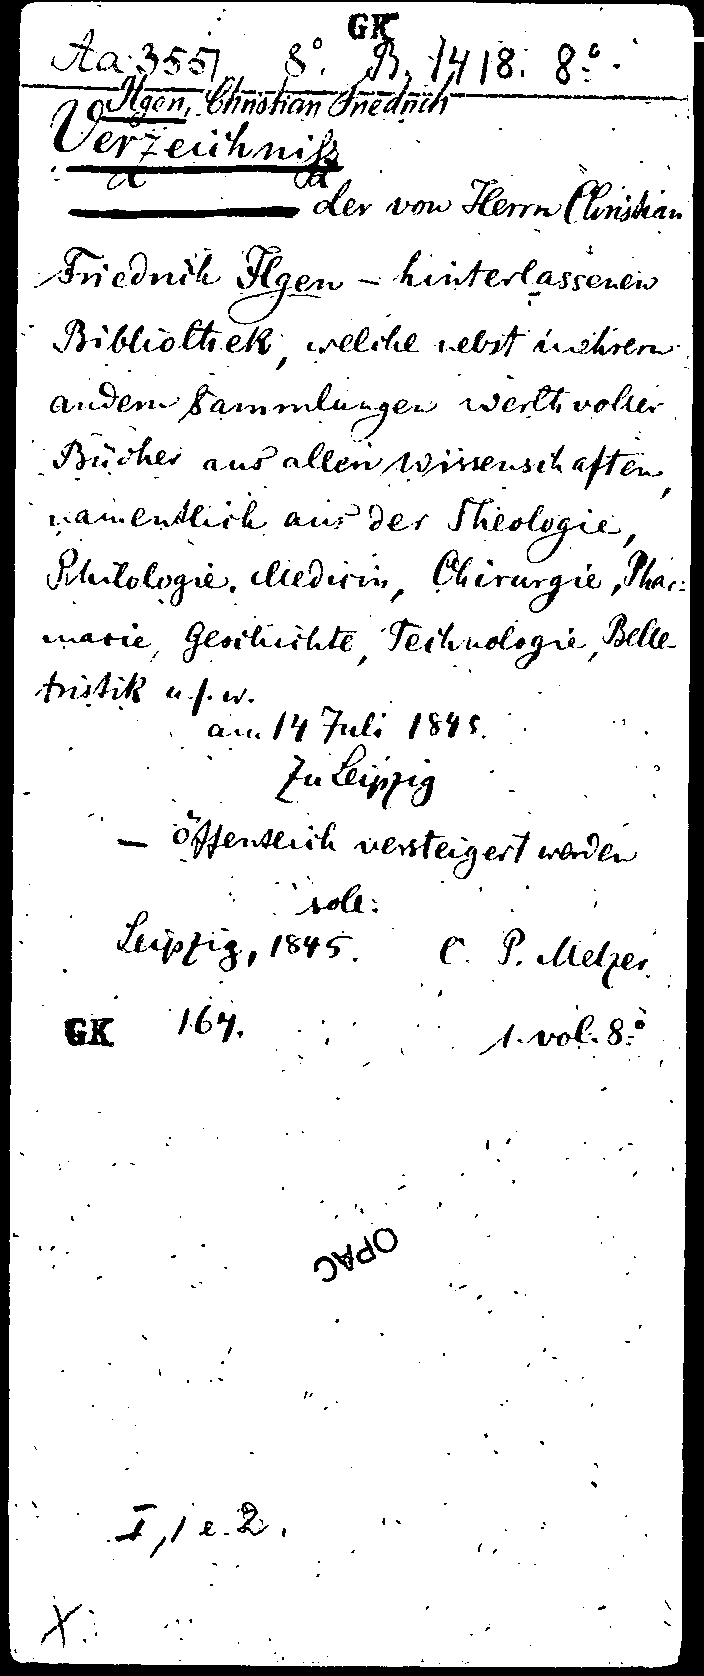 GK
Aa 3551 8°. B. 1418. 8°.
Ilgen, Christian Friedrich
Verzeichniß
der von Herrn Christian
Friedrich Ilgen – hinterlassenen
Bibliothek, welche nebst mehrern
andern Sammlungen werthvoller
Bücher aus allen Wissenschaften,
namentlich aus der Theologie,
Philologie, Medicin, Chirurgie, Phar-
macie, Geschichte, Technologie, Belle-
tristik u.s.w.
am 14 Juli 1845.
zu Leipzig
– öffentlich versteigert werden
soll:
Leipzig, 1845. C. P. Melzer.
GK 164. 1. vol. 8°
OPAC
I, 1 e. 2.
X.